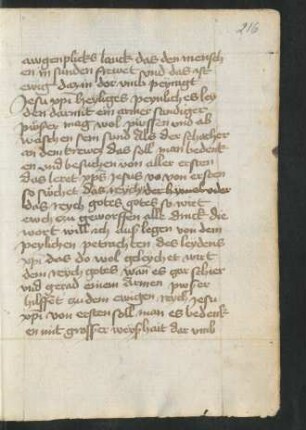 216
augenplicks lanck das den mensch
en in sunden frewet vnd das ist
ewig darin dor vmb peynigt
Jesu xpi heyliges peynlich es ley
den darmit ein armer sundiger
poser mag wol püssen vnd ab
waschen sein sund Als der schacher
an dem crewcz das soll man bedenk
en vnd besuchen von aller ersten
das leret xps jesus vo von ersten
so süchet das reych der hymel oder
das reych gotes gotes so wirt
ewch zu geworffen alle dinck die
wort will ich aus legen von dem
peylichen petrachten des leydens
xpi das do wol geleychet wirt
dem reych gotes wan es gar schier
vnd gerad einem armen poser
hilffet zu dem ewigen reych Jesu
xpi von ersten soll man es bedenk
en mit grosser weysshait dar vmb